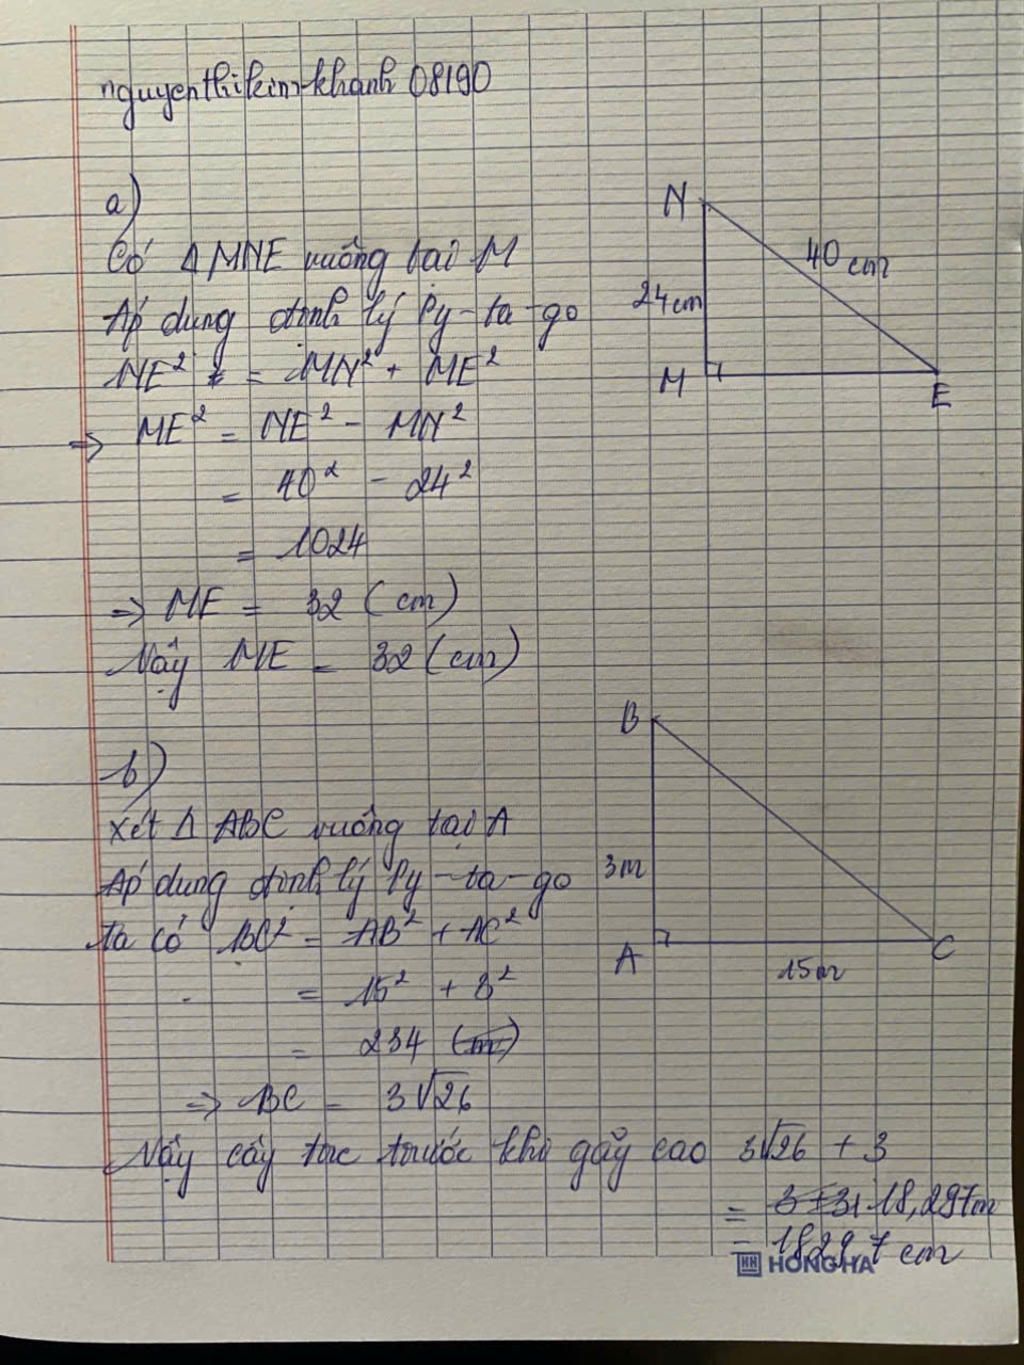 nguyenthikimkhanh 08190
a)
Có Δ MNE vuông tại M
Áp dung định lý Py-ta-go
NE² = MN² + ME²
=> ME² = NE² - MN²
= 40² - 24²
= 1024
=> ME = 32 (cm)
Vậy ME = 32 (cm)
N
40 cm
24cm
M
E
b)
Xét Δ ABC vuông tại A
Áp dung định lý Py-ta-go
Ta có BC² = AB² + AC²
= 15² + 3²
= 234 (m)
=> BC = 3√26
Vậy cây tre trước khi gãy cao 3√26 + 3
= 18,297m
= 1829,7 cm
B
3m
A
15m
C
HH HONG HA